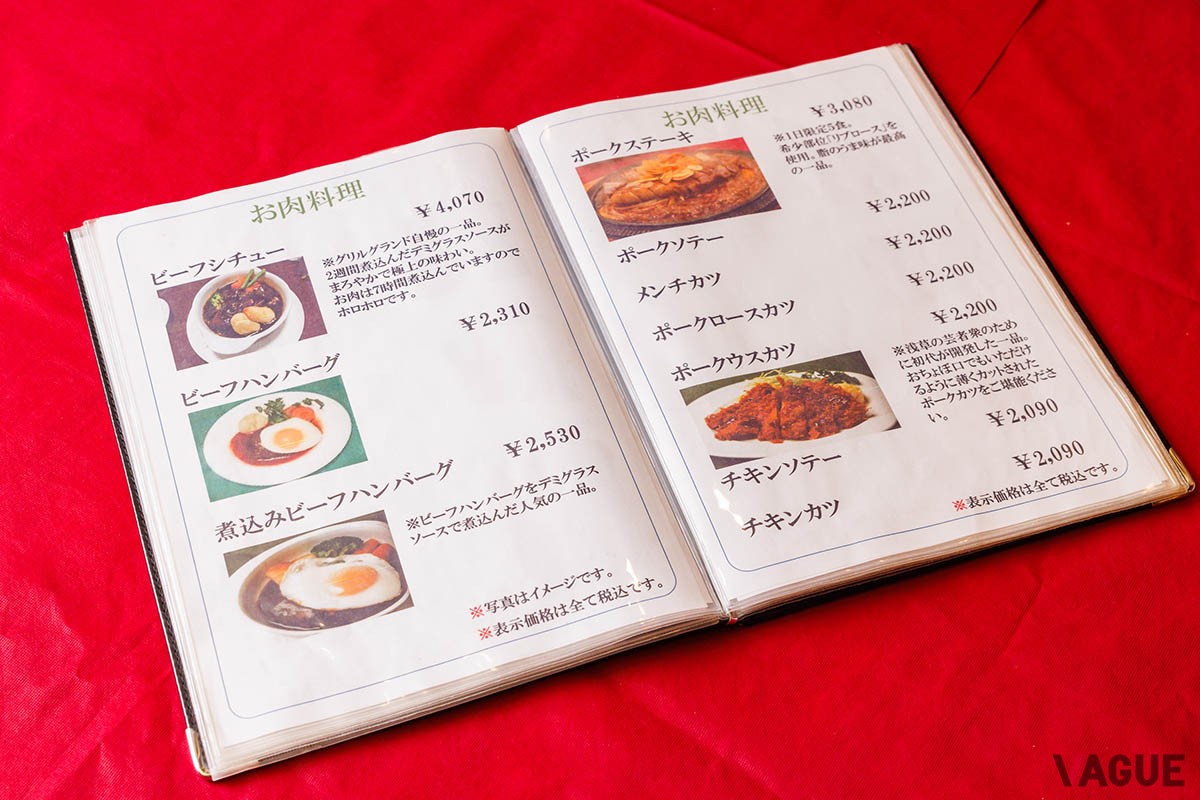 お肉料理
ビーフシチュー
¥4,070
※グリルグランド自慢の一品。
2週間煮込んだデミグラスソースが
まろやかで極上の味わい。
お肉は7時間煮込んでいますので
ホロホロです。
ビーフハンバーグ
¥2,310
煮込みビーフハンバーグ
¥2,530
※ビーフハンバーグをデミグラス
ソースで煮込んだ人気の一品。
※写真はイメージです。
※表示価格は全て税込です。
お肉料理
ポークステーキ
¥3,080
※1日限定5食。
希少部位「リブロース」を
使用。脂のうま味が最高
の一品。
ポークソテー
¥2,200
メンチカツ
¥2,200
ポークロースカツ
¥2,200
ポークウスカツ
¥2,200
※浅草の芸者衆のため
に初代が開発した一品。
おちょぼ口でもいただけ
るように薄くカットされた
ポークカツをご堪能くださ
い。
チキンソテー
¥2,090
チキンカツ
¥2,090
※表示価格は全て税込です。
VAGUE